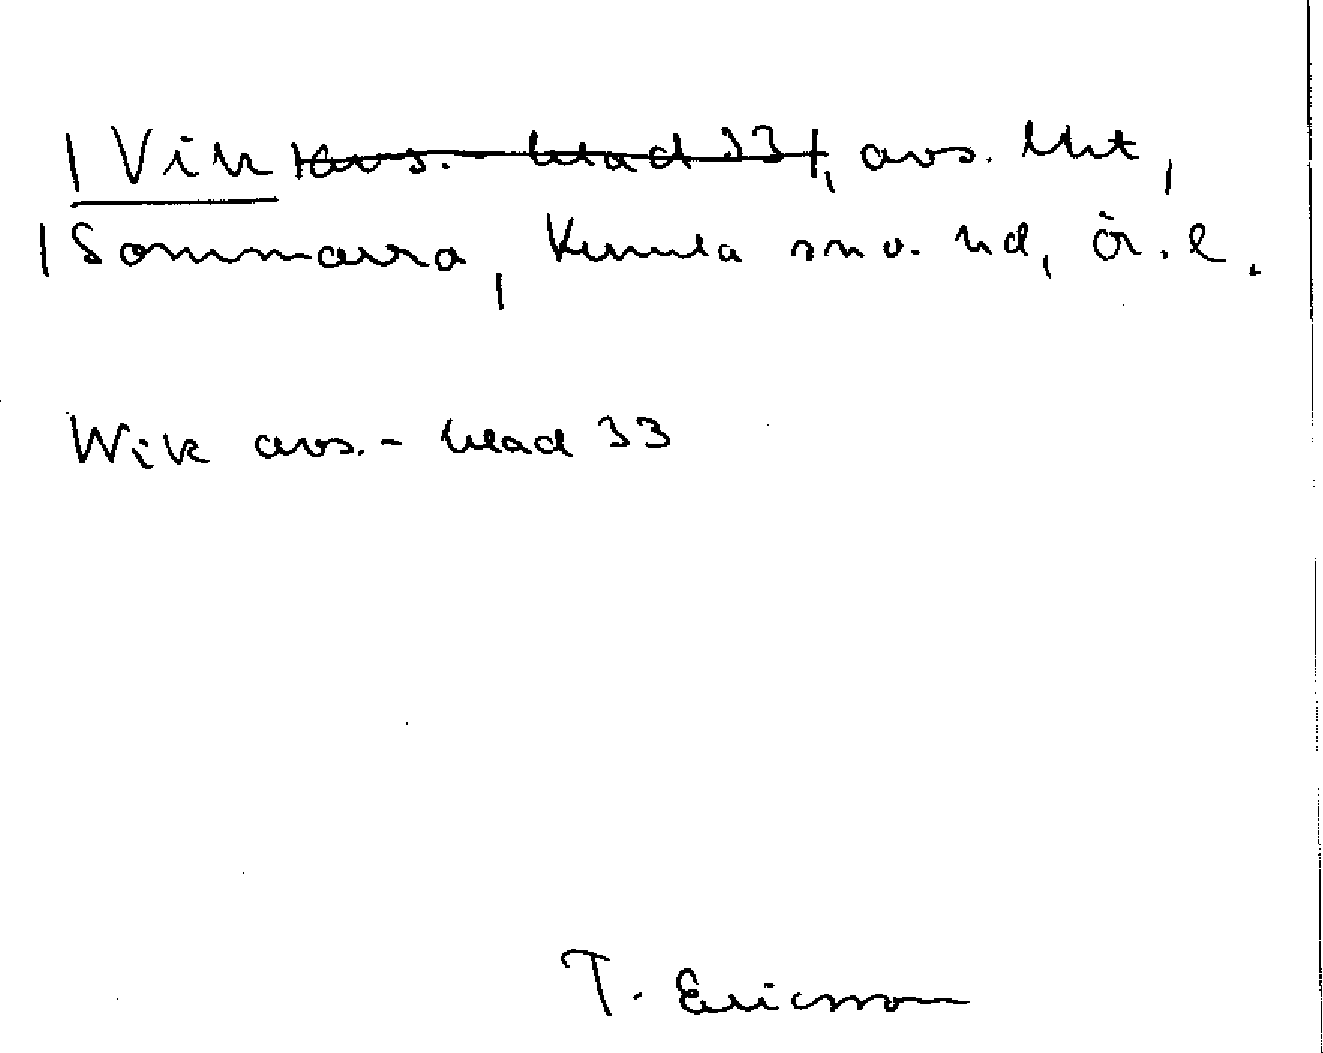 Vik ~~avs. - blad 33~~, avs. lht,
Sommarro, Kumla snv. hd, Ör. l.
Wik avs. - blad 33
T. Ericsson